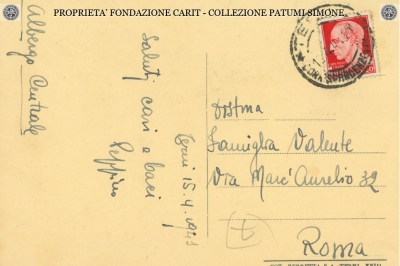 PROPRIETA' FONDAZIONE CARIT - COLLEZIONE PATUMI SIMONE
Albergo Centrale
Terni 15.4.1941
Saluti cari e baci
Peppino
Famiglia Valente
Via Marc' Aurelio 32
Roma